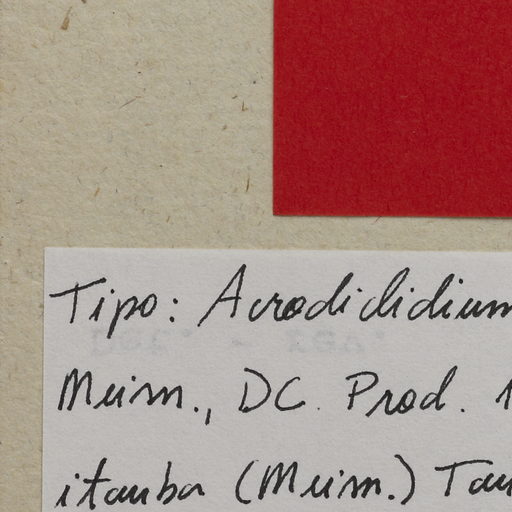 Tipo: Acrodiclidium
Meissn., DC. Prod. 1
itauba (Meissn.) Tau